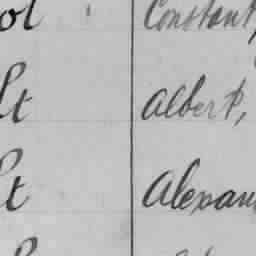 ol Constant,
lt Albert,
lt Alexan